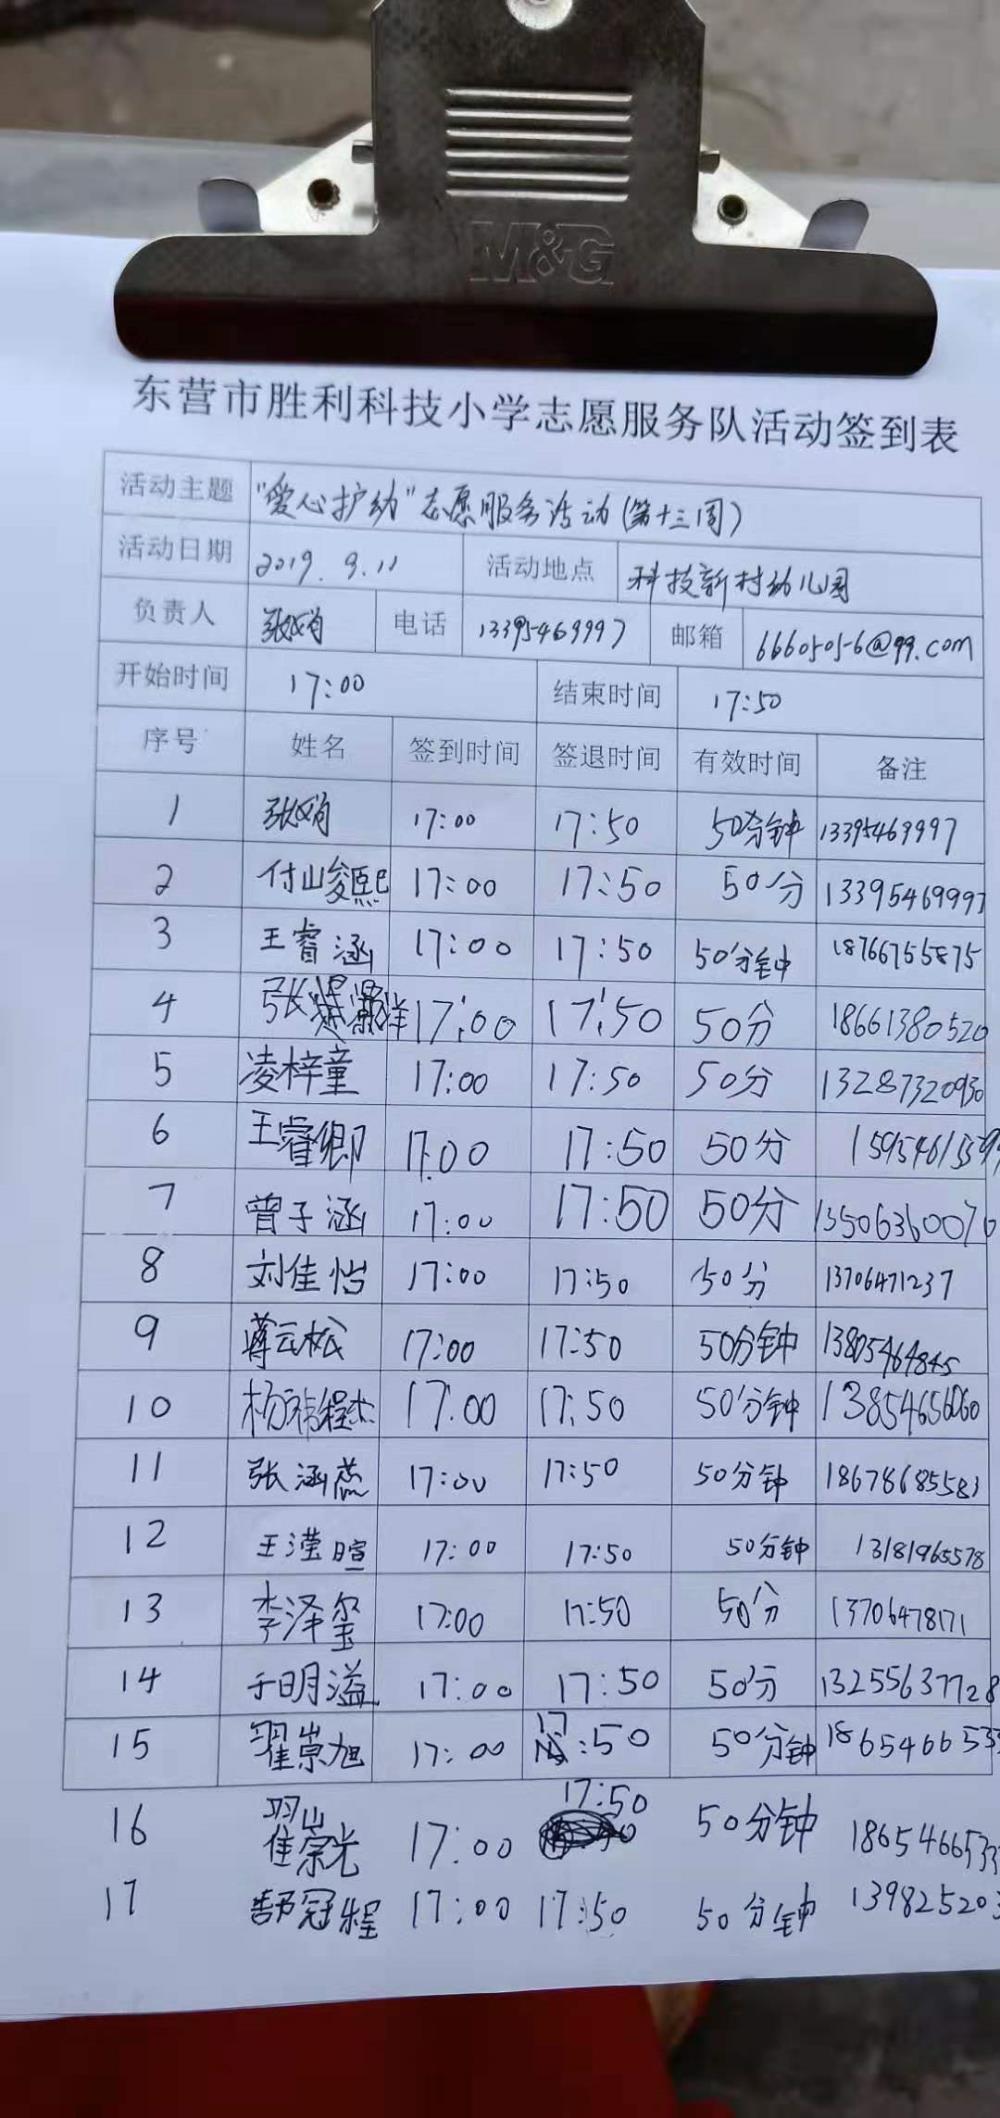 M&G
东营市胜利科技小学志愿服务队活动签到表
活动主题 "爱心护幼"志愿服务活动(第十三周)
活动日期 2019.9.11 活动地点 科技新村幼儿园
负责人 张 电话 13395469997 邮箱 6660505-6@qq.com
开始时间 17:00 结束时间 17:50
序号 姓名 签到时间 签退时间 有效时间 备注
1 张 17:00 17:50 50分钟 13395469997
2 付山峻熙 17:00 17:50 50分 13395469997
3 王睿涵 17:00 17:50 50分钟 18766755875
4 张 洋 17:00 17:50 50分 18661380520
5 凌梓童 17:00 17:50 50分 13287320930
6 王睿卿 17:00 17:50 50分
7 曾子涵 17:00 17:50 50分 13506360070
8 刘佳怡 17:00 17:50 50分 13706471237
9 蒋云松 17:00 17:50 50分钟 13805464845
10 杨 程杰 17:00 17:50 50分钟 13854656060
11 张涵蕊 17:00 17:50 50分钟 18678685583
12 王滢暄 17:00 17:50 50分钟 13181965578
13 李泽玺 17:00 17:50 50分 13706478171
14 于明溢 17:00 17:50 50分 13255637728
15 翟崇旭 17:00 17:50 50分钟 1865466533
16 翟崇光 17:00 17:50 50分钟 1865466533
17 郝冠程 17:00 17:50 50分钟 139825203